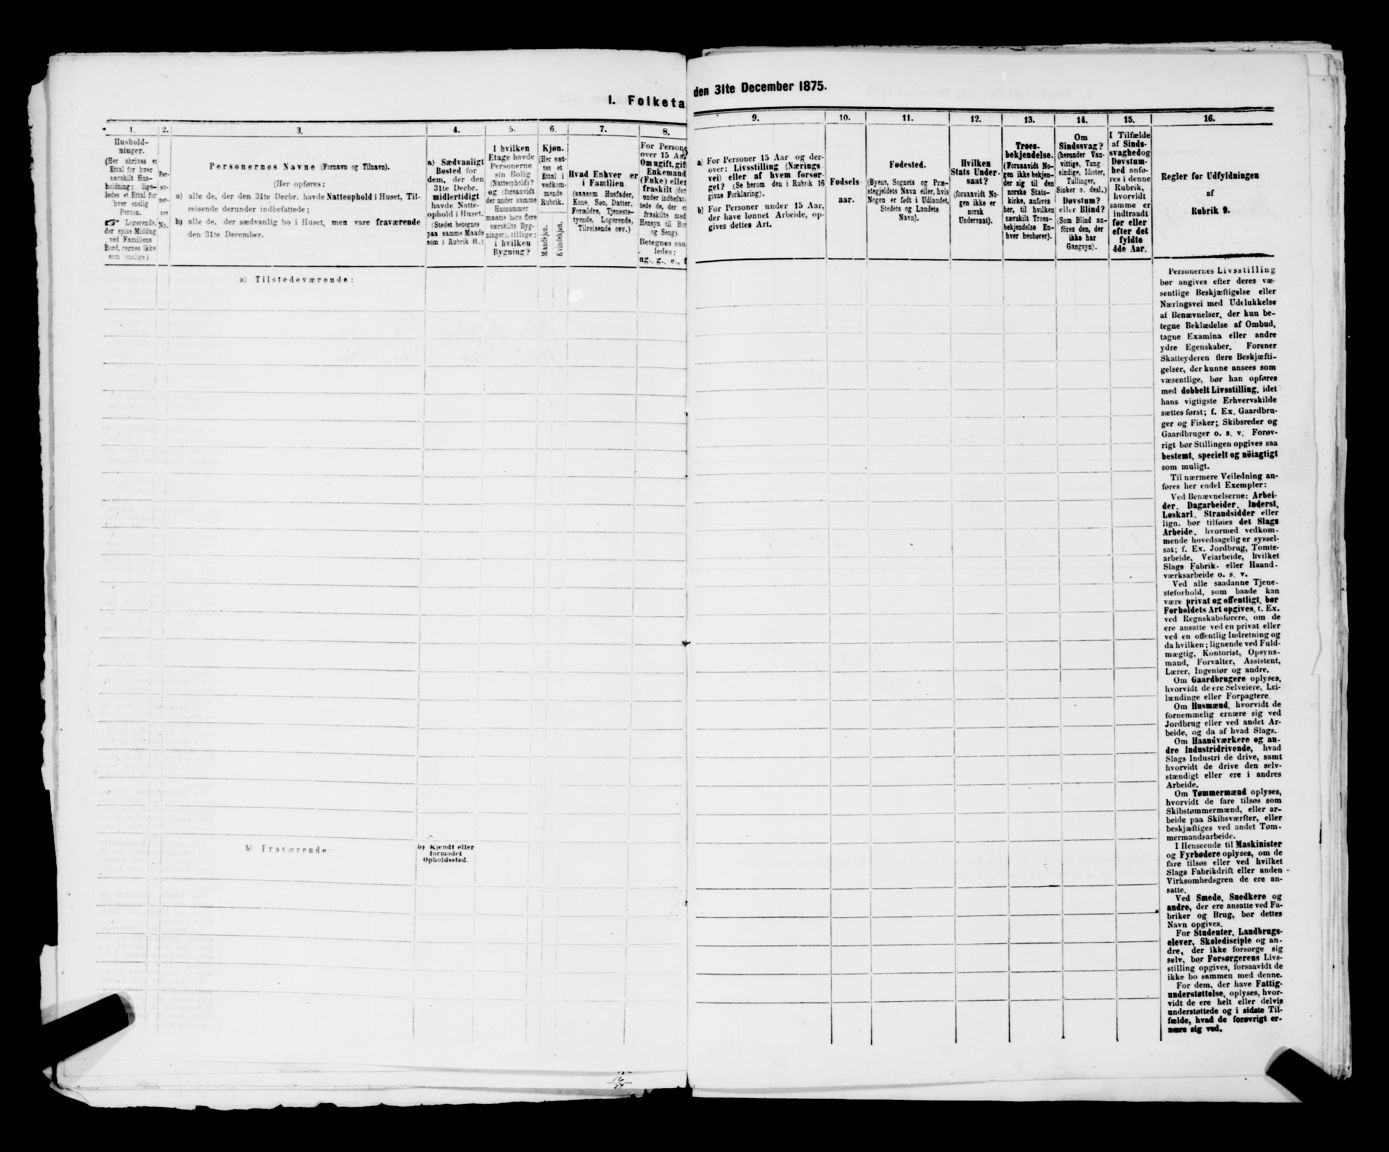 I. Folketa
den 31te December 1875.
1.
2.
3.
4.
5.
6.
7.
8.
9.
10.
11.
12.
13.
14.
15.
16.
Hushold-
ninger.
(Her skrives et
Ettal for hver
særskilt Hus-
holdning; lige-
ledes et Ettal for
hver enslig
Person.
☞ Logerende,
der spise Middag
ved Familiens
Bord, regnes ikke
som enslige).
Per-
so-
ner-
nes
No.
Personernes Navne (Fornavn og Tilnavn).
(Her opføres:
a) alle de, der den 31te Decbr. havde Natteophold i Huset, Til-
reisende derunder indbefattede;
b) alle de, der sædvanlig bo i Huset, men vare fraværende
den 31te December.
a) Sædvanligt
Bosted for
dem, der den
31te Decbr.
midlertidigt
havde Natte-
ophold i Huset.
(Stedet betegnes
paa samme Maade
som i Rubrik 11.)
I hvilken
Etage havde
Personerne
sin Bolig
(Natteophold)?
og (forsaavidt
der under samme
Husnummer
maatte høre flere
særskilte Byg-
ninger), tillige:
i hvilken
Bygning?
Kjøn.
(Her sæt-
tes et
Ettal i
vedkom-
mende
Rubrik.
Mandkjøn.
Kvindekjøn.
Hvad Enhver er
i Familien
(saasom Husfader,
Kone, Søn, Datter,
Forældre, Tjeneste-
tyende, Logerende,
Tilreisende osv.)
For Person
over 15 Aar
Omugift, gift
Enkemand
(Enke) eller
fraskilt (der
under indbefat-
tede de, der e
fraskilte med
Hensyn til Bor
og Seng).
Betegnes saa
ledes:
ug., g., e., f
a) For Personer 15 Aar og der-
over: Livsstilling (Nærings-
vei) eller af hvem forsør-
get? (Se herom den i Rubrik 16
givne Forklaring).
b) For Personer under 15 Aar,
der have lønnet Arbeide, op-
gives dettes Art.
Fødsels-
aar.
Fødested.
(Byens, Sognets og Præ-
stegjeldets Navn eller, hvis
Nogen er født i Udlandet,
Stedets og Landets
Navn).
Hvilken
Stats Under-
saat?
(forsaavidt No-
gen ikke er
norsk
Undersaat).
Troes-
bekjendelse.
(Forsaavidt No-
gen ikke bekjen-
der sig til den
norske Stats-
kirke, anføres
her, til hvilken
særskilt Troes-
bekjendelse En-
hver henhører).
Om
Sindssvag?
(herunder Van-
vittige, Tung-
sindige, Idioter,
Tullinger,
Sinker o. desl.)
Døvstum?
eller Blind?
(Som Blind an-
føres den, der
ikke har
Gangsyn).
I Tilfælde
af Sinds-
svaghed og
Døvstum-
hed anfø-
res i denne
Rubrik,
hvorvidt
samme er
indtraadt
før eller
efter det
fyldte
4de Aar.
Regler for Udfyldningen
af
Rubrik 9.
a) Tilstedeværende:
b) Fraværende:
b) Kjendt eller
formodet
Opholdssted.
Personernes Livsstilling
bør angives efter deres væ-
sentlige Beskjæftigelse eller
Næringsvei med Udelukkelse
af Benævnelser, der kun be-
tegne Beklædelse af Ombud,
tagne Examina eller andre
ydre Egenskaber. Forener
Skatteyderen flere Beskjæfti-
gelser, der kunne ansees som
væsentlige, bør han opføres
med dobbelt Livsstilling, idet
hans vigtigste Erhvervskilde
sættes først; f. Ex. Gaardbru-
ger og Fisker; Skibsreder og
Gaardbruger o. s. v. Forøv-
rigt bør Stillingen opgives saa
bestemt, specielt og nöiagtigt
som muligt.
Til nærmere Veiledning an-
føres her endel Exempler:
Ved Benævnelserne: Arbei-
der, Dagarbeider, Inderst,
Løskarl, Strandsidder eller
lign. bør tilføies det Slags
Arbeide, hvormed vedkom-
mende hovedsagelig er syssel-
sat; f. Ex. Jordbrug, Tomte-
arbeide, Veiarbeide, hvilket
Slags Fabrik- eller Haand-
værksarbeide o. s. v.
Ved alle saadanne Tjene-
steforhold, som baade kan
være privat og offentligt, bør
Forholdets Art opgives, f. Ex.
ved Regnskabsførere, om de
ere ansatte ved en privat eller
ved en offentlig Indretning og
da hvilken; lignende ved Fuld-
mægtig, Kontorist, Opsyns-
mand, Forvalter, Assistent,
Lærer, Ingeniør og andre.
Om Gaardbrugere oplyses,
hvorvidt de ere Selveiere, Lei-
lændinge eller Forpagtere.
Om Husmænd, hvorvidt de
fornemmelig ernære sig ved
Jordbrug eller ved andet Ar-
beide, og da af hvad Slags.
Om Haandværkere og an-
dre Industridrivende, hvad
Slags Industri de drive, samt
hvorvidt de drive den selv-
stændigt eller ere i andres
Arbeide.
Om Tømmermænd oplyses,
hvorvidt de fare tilsøs som
Skibstømmermænd, eller ar-
beide paa Skibsværfter, eller
beskjæftiges ved andet Tøm-
mermandsarbeide.
I Henseende til Maskinister
og Fyrbødere oplyses, om de
fare tilsøs eller ved hvilket
Slags Fabrikdrift eller anden
Virksomhedsgren de ere an-
satte.
Ved Smede, Snedkere og
andre, der ere ansatte ved Fa-
briker og Brug, bør dettes
Navn opgives.
For Studenter, Landbrugs-
elever, Skoledisciple og an-
dre, der ikke forsørge sig
selv, bør Forsørgerens Livs-
stilling opgives, forsaavidt de
ikke bo sammen med denne.
For dem, der have Fattig-
understøttelse, oplyses, hvor-
vidt de ere helt eller delvis
understøttede og i sidste Til-
fælde, hvad de forøvrigt er-
nære sig ved.